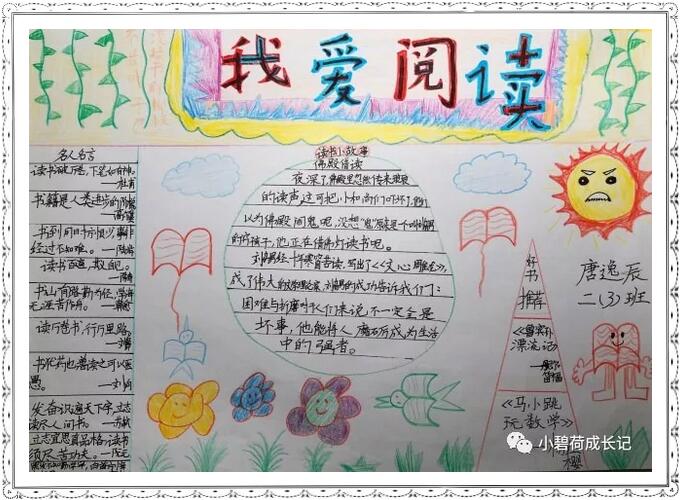 我爱阅读
名人名言
读书破万卷,下笔如有神。
——杜甫
书籍是人类进步的阶梯
——高尔基
书到用时方恨少事非
经过不知难。——陆游
读书百遍,其义自现。
书山有路勤为径,学海
无涯苦作舟。——韩愈
读万卷书,行万里路。
——刘彝
书犹药也善读之可以医
愚。——刘向
发奋识遍天下字,立志
读尽人间书。——苏轼
立志宜思真品格,读书
须尽苦功夫。——阮元
读书小故事
佛殿借读
夜深了,佛殿里忽然传来琅琅
的读声,这可把小和尚们吓坏了,他们
以为佛殿闹鬼呢,没想“鬼”原来是一个叫刘勰
的穷孩子,他正在借佛灯读书呢。
刘勰经十年寒窗苦读,写出了《文心雕龙》
成了伟大的文学理论家,刘勰的成功告诉我们:
困难与折磨对于人们来说,不一定全是
坏事,他能将人磨历成为生活
中的强者。
好书推荐
《鲁宾孙
漂流记》
笛福
《马小跳
玩数学》
樱
唐逸辰
二(3)班
小碧荷成长记